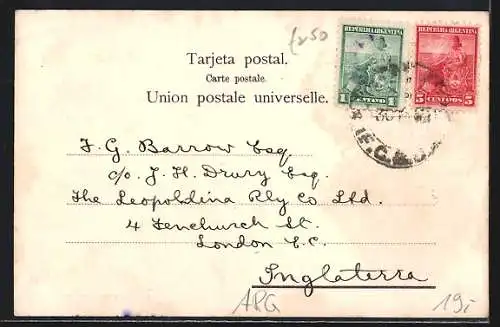 £250
REPUBLICA ARGENTINA
1 CENTAVO 1
REPUBLICA ARGENTINA
5 CENTAVOS 5
Tarjeta postal.
Carte postale.
Union postale universelle.
F. G. Barrow Esq
c/o. J. H. Drury Esq.
The Leopoldina Rly Co Ltd.
4 Fenchurch St.
London E.C.
Inglaterra
ARG
19.-